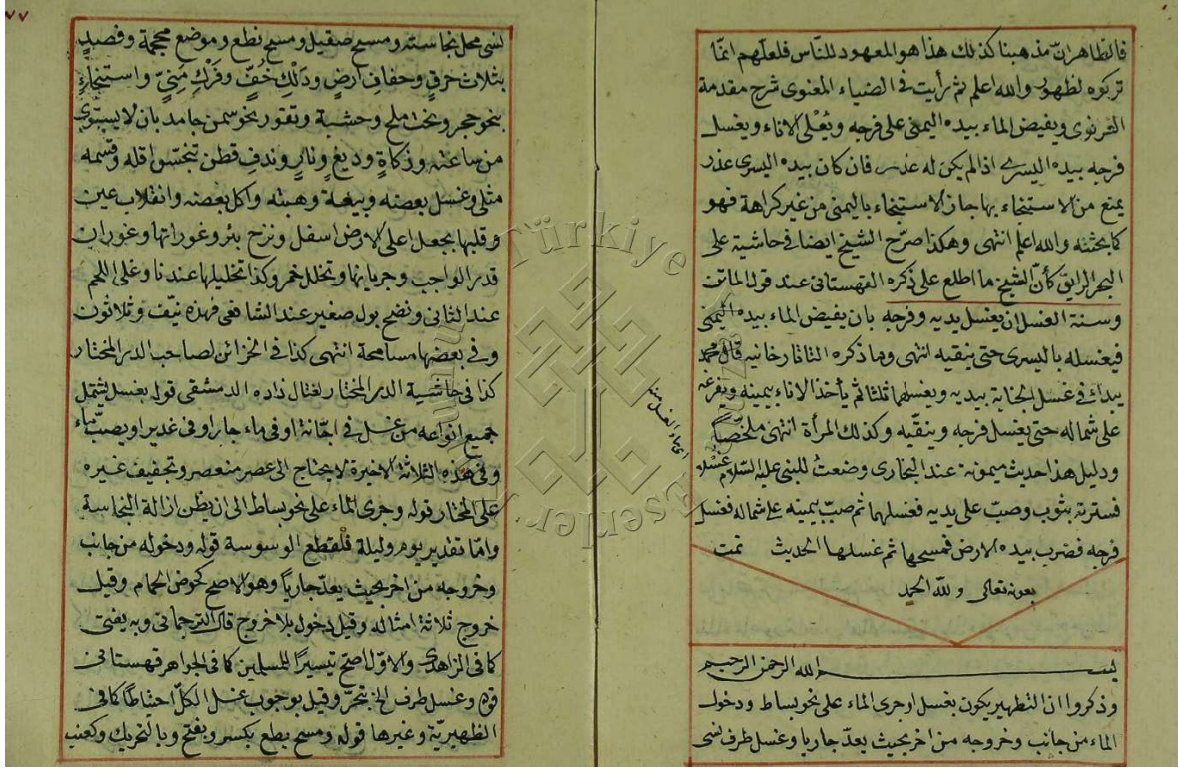 فالظاهر انّ مذهبنا كذلك هذا هو المعهود للنّاس فلعلّهم انمّا
تركوه لظهوره والله اعلم ثم رأيت في الضياء المعنوى شرح مقدمة
الغزنوى ويفيض الماء بيده اليمنى على فرجه ويُعْلى الاناء ويغسل
فرجه بيده اليسرى اذا لم يكن له عذر فان كان بيده اليسرى عذر
يمنع من الاستنجاء بها جاز الاستنجاء باليمنى من غير كراهة فهو
كما بحثته والله اعلم انتهى وهكذا صرّح الشيخ ايضا في حاشيته على
البحر الرايق كأنّ الشيخ ما اطلع على ذكره القهستانى عند قول الماتن
وسنة الغسل ان يغسل يديه وفرجه بان يفيض الماء بيده اليمنى
فيغسله باليسرى حتى ينقيه انتهى وما ذكره التاتارخانيه قال محمد
يبدأ في غسل الجنابة بيديه ويغسلهما ثلثا ثم يأخذ الاناء بيمينه ويفرغه
على شماله حتى يغسل فرجه وينقّيه وكذلك المرأة انتهى ملخصّاً
ودليل هذا حديث ميمونة عند البخارى وضعتُ للنبى عليه السّلام غسْلا
فسترته بثوب وصبّ على يديه فغسلهما ثم صبّ بيمينه على شماله فغسل
فرجه فضرب بيده الارض فمسحها ثم غسلها الحديث تمت
بعونه تعالى ولله الحمد
بسم الله الرحمن الرحيم
وذكروا ان التطهير يكون بغسل اوجرى الماء على نحو بساط ودخول
الماء من جانب وخروجه من اخر بحيث يعدّ جاريا وغسل طرف نسى
٧٧
لنسى محل نجاسته ومسح صقيل ومسح نطع وموضع محجمة وفصيدٍ
بثلاث خرقٍ وجفافِ ارضٍ ودَلْكِ خُفٍّ وفَرْكِ مَنِىٍّ واستنجاءٍ
بنحو حجر ونحت ملح وخشبة وتقور نحو سمن جامد بان لا يستوى
من ساعته وذكاةٍ ودبغٍ ونارٍ وندفِ قطن تنجّس اقله وقسمه
مثلى وغسل بعضه وبيعه وهبته واكل بعضه وانقلاب عين
وقلبها بجعل اعلى الارض اسفل ونزح بئر وغورانها وغوران
قدر الواجب وجريانها وتخلل خمر وكذا تخليلها عندنا وغلى اللحم
عند الثانى ونضح بول صغير عند الشافعى فهذه نيّف وثلاثون
وفى بعضها مسامحة انتهى كذا فى الخزائن لصاحب الدر المختار
كذا فى حاشية الدر المختار لفتال زاده الدمشقى قوله بغسل يشتمل
جميع انواعه من غسل فى اجّانة او فى ماء جار او فى غدير او بصبّ ماء
وفى هذه الثلاثة الاخيرة لا يحتاج الى عصر منعصر وتجفيف غيره
على المختار قوله وجرى الماء على نحو بساط الى ان يظن ازالة النجاسة
وامّا تقدير يوم وليلة فلقطع الوسوسة قوله ودخوله من جانب
وخروجه من اخر بحيث يعدّ جارياً وهو الاصح كحوض الحمام وقيل
خروج ثلاثة امثاله وقيل دخول بلا خروج قال الترجمانى وبه يفتى
كما فى الزاهدى والاوّل اصح تيسيراً للمسلمين كما فى الجواهر قهستانى
قوله وغسل طرف الخ بتحرٍّ وقيل بوجوب غسل الكلّ احتياطا كما فى
الظهيريّة وغيرها قوله ومسح نطع بكسر وبفتح وبالتحريك وكعنب